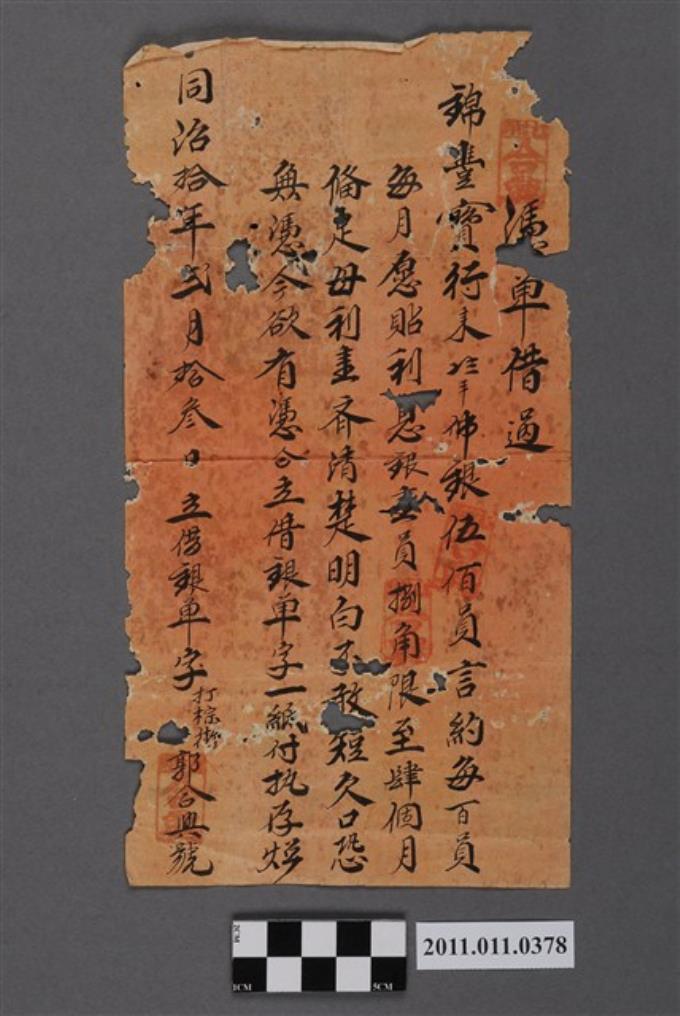 憑单借過
錦豐寶行來 平佛銀伍佰員言約每百員
每月愿貼利息銀壹員捌角限至肆個月
俻足母利壹齊清楚明白不敢短欠口恐
無憑今欲有憑合立借銀单字一紙付执存炤
同治拾年弍月拾叁日立借銀単字打棕街郭合興號
2CM
1CM
5CM
2011.011.0378